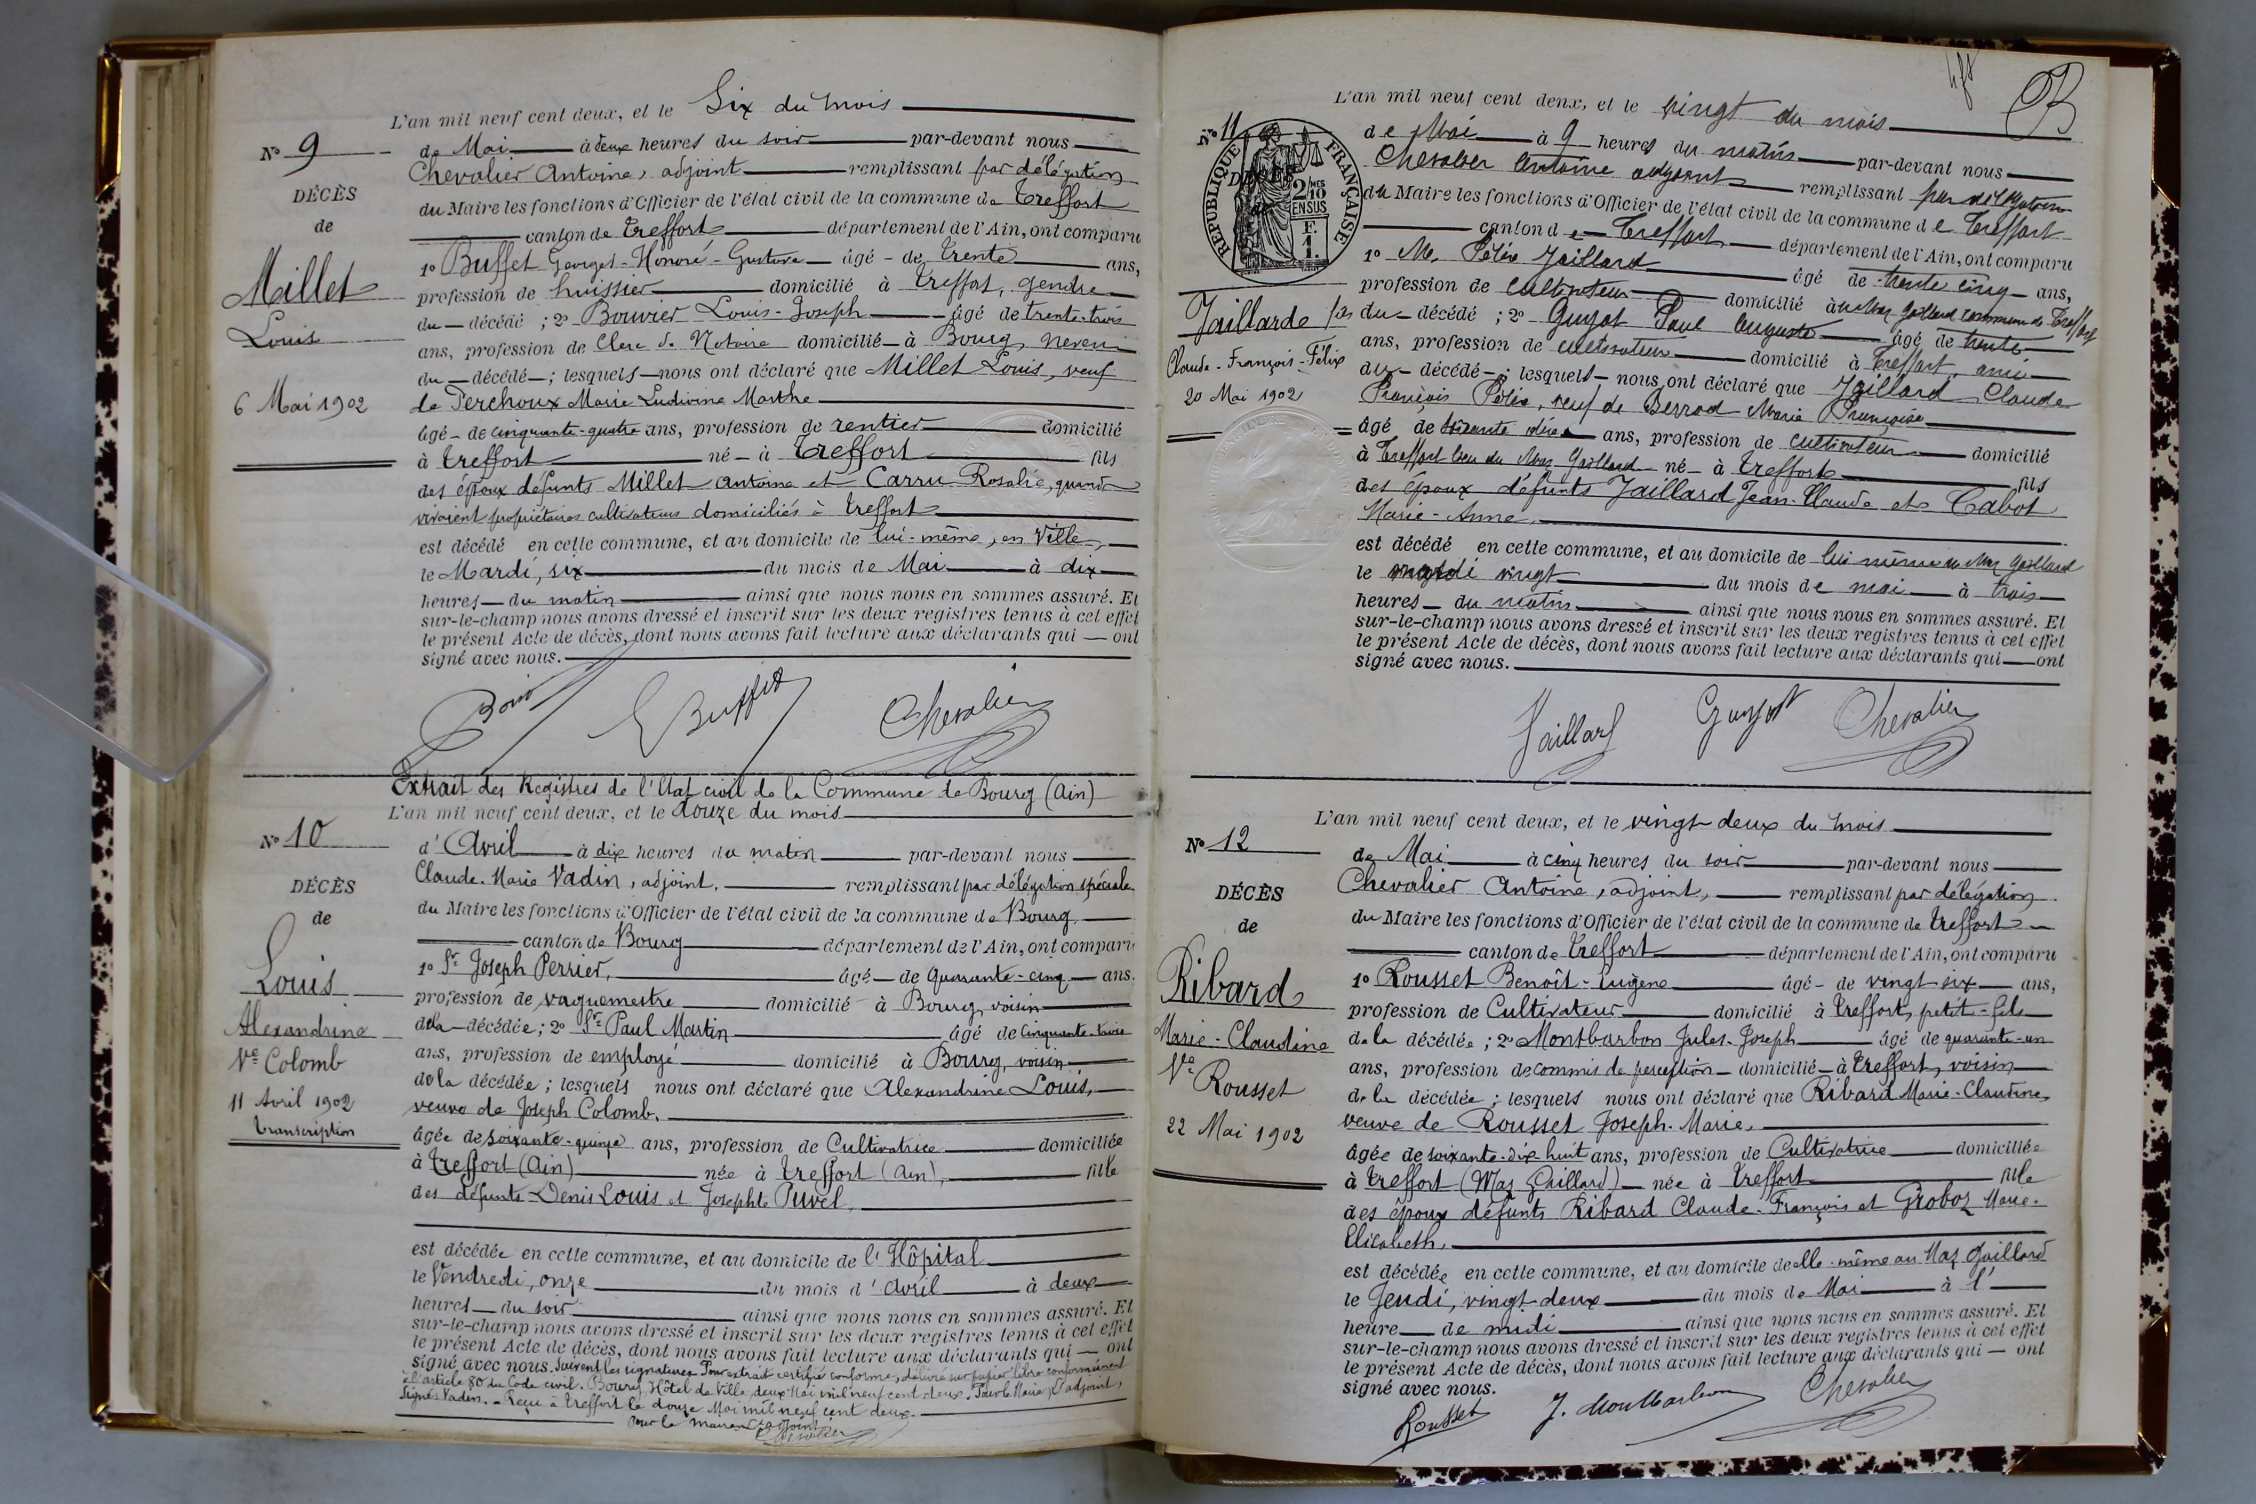 L'an mil neuf cent deux, et le Six du mois
N° 9
de Mai à deux heures du soir par-devant nous
Chevalier Antoine, adjoint remplissant par délégation
DÉCÈS
du Maire les fonctions d'Officier de l'état civil de la commune de Treffort
de
canton de Treffort département de l'Ain, ont comparu
1° Buffet Georges-Honoré-Gustave âgé de trente ans,
Millet
profession de huissier domicilié à Treffort, gendre
du décédé ; 2° Bouvier Louis-Joseph âgé de trente-trois
Louis
ans, profession de Clerc de Notaire domicilié à Bourg, neveu
du décédé ; lesquels nous ont déclaré que Millet Louis, veuf
6 Mai 1902
de Perchoux Marie Ludivine Marthe
âgé de cinquante-quatre ans, profession de rentier domicilié
à Treffort né à Treffort fils
des époux défunts Millet Antoine et Carru Rosalie, quand
vivaient propriétaires cultivateurs domiciliés à Treffort
est décédé en cette commune, et au domicile de lui-même, en Ville,
le Mardi, six du mois de Mai à dix
heures du matin ainsi que nous nous en sommes assuré. Et
sur-le-champ nous avons dressé et inscrit sur les deux registres tenus à cet effet
le présent Acte de décès, dont nous avons fait lecture aux déclarants qui ont
signé avec nous.
Buffet Chevalier
Extrait des Registres de l'Etat civil de la Commune de Bourg (Ain)
L'an mil neuf cent deux, et le douze du mois
N° 10
d'Avril à dix heures du matin par-devant nous
Claude-Marie Vadin, adjoint, remplissant par délégation spéciale
DÉCÈS
du Maire les fonctions d'Officier de l'état civil de la commune de Bourg,
de
canton de Bourg département de l'Ain, ont comparu
Louis
1° Sr Joseph Perrier, âgé de quarante-cinq ans.
profession de vaguemestre domicilié à Bourg, voisin
Alexandrine
de la décédée ; 2° Sr Paul Martin âgé de cinquante-trois
Ve Colomb
ans, profession de employé domicilié à Bourg, voisin
de la décédée ; lesquels nous ont déclaré que Alexandrine Louis,
11 Avril 1902
veuve de Joseph Colomb,
transcription
âgée de soixante-quinze ans, profession de Cultivatrice domiciliée
à Treffort (Ain) née à Treffort (Ain), fille
des défunts Denis Louis et Josephte Puvel,
est décédée en cette commune, et au domicile de l'Hôpital
le Vendredi, onze du mois d'avril à deux
heures du soir ainsi que nous nous en sommes assuré. Et
sur-le-champ nous avons dressé et inscrit sur les deux registres tenus à cet effet
le présent Acte de décès, dont nous avons fait lecture aux déclarants qui ont
signé avec nous. Suivent les signatures Pour extrait certifié conforme, délivré sur papier libre conformément
à l'article 80 du Code civil. Bourg, Hôtel de Ville, deux Mai mil neuf cent deux. Pour le Maire, l'adjoint,
Signé: Vadin. - Reçu à Treffort le douze Mai mil neuf cent deux.
Pour le Maire adjoint
Chevalier
L'an mil neuf cent deux, et le vingt du mois
N° 11
RÉPUBLIQUE FRANÇAISE
2 MES 10 EN SUS
F. 1.
de Mai à 9 heures du matin par-devant nous
Chevalier Antoine adjoint remplissant par délégation
DÉCÈS
du Maire les fonctions d'Officier de l'état civil de la commune de Treffort
de
canton de Treffort département de l'Ain, ont comparu
1° Mr Félix Jaillard âgé de trente cinq ans,
profession de cultivateur domicilié à au Mas Gaillard commune de Treffort
Jaillarde
fils du décédé ; 2° Guyot Paul Auguste âgé de trente
Claude-François-Félix
ans, profession de cultivateur domicilié à Treffort, ami
du décédé ; lesquels nous ont déclaré que Jaillard Claude
20 Mai 1902
François Félix, veuf de Berrod Marie Françoise
âgé de soixante ans, profession de cultivateur domicilié
à Treffort lieu du Mas Gaillard né à Treffort fils
des époux défunts Jaillard Jean-Claude et Cabot
Marie-Anne,
est décédé en cette commune, et au domicile de lui même au Mas Gaillard
le mardi vingt du mois de mai à trois
heures du matin ainsi que nous nous en sommes assuré. Et
sur-le-champ nous avons dressé et inscrit sur les deux registres tenus à cet effet
le présent Acte de décès, dont nous avons fait lecture aux déclarants qui ont
signé avec nous.
Jaillard Guyot Chevalier
L'an mil neuf cent deux, et le vingt-deux du mois
N° 12
de Mai à cinq heures du soir par-devant nous
Chevalier Antoine, adjoint, remplissant par délégation
DÉCÈS
du Maire les fonctions d'Officier de l'état civil de la commune de Treffort
de
canton de Treffort département de l'Ain, ont comparu
Ribard
1° Rousset Benoît-Eugène âgé de vingt-six ans,
profession de Cultivateur domicilié à Treffort, petit-fils
Marie-Claudine
de la décédée ; 2° Montbarbon Jules-Joseph âgé de quarante-un
Ve Rousset
ans, profession de commis de perception domicilié à Treffort, voisin
de la décédée ; lesquels nous ont déclaré que Ribard Marie-Claudine,
22 Mai 1902
veuve de Rousset Joseph-Marie,
âgée de soixante-dix huit ans, profession de Cultivatrice domiciliée
à Treffort (Mas Gaillard) née à Treffort fille
des époux défunts Ribard Claude-François et Groboz Marie-
Elisabeth,
est décédée en cette commune, et au domicile de elle-même au Mas Gaillard
le Jeudi, vingt-deux du mois de Mai à l'
heure de midi ainsi que nous nous en sommes assuré. Et
sur-le-champ nous avons dressé et inscrit sur les deux registres tenus à cet effet
le présent Acte de décès, dont nous avons fait lecture aux déclarants qui ont
signé avec nous.
Rousset J. Montbarbon Chevalier